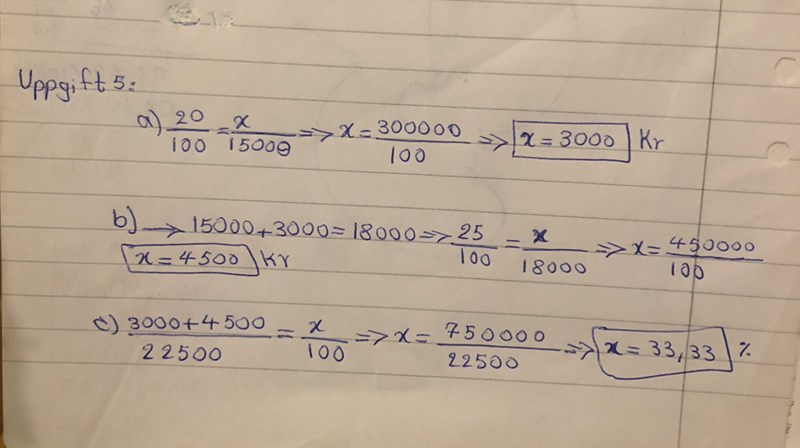 Uppgift 5:
a) 20/100 = x/15000 => x = 300000/100 => x = 3000 Kr
b) → 15000 + 3000 = 18000 => 25/100 = x/18000 => x = 450000/100
x = 4500 Kr
c) 3000+4500/22500 = x/100 => x = 750000/22500 => x = 33,33 %